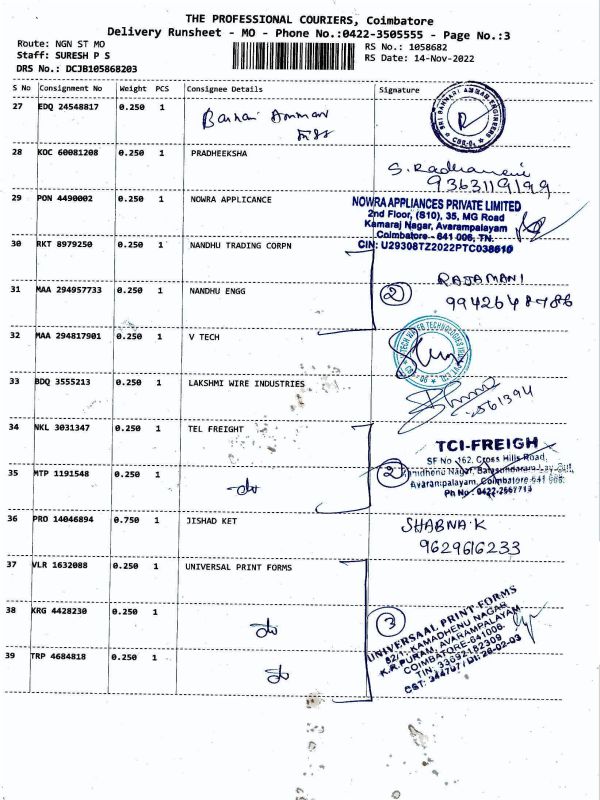 THE PROFESSIONAL COURIERS, Coimbatore
Delivery Runsheet - MO - Phone No.:0422-3505555 - Page No.:3
Route: NGN ST MO
Staff: SURESH P S
DRS No.: DCJB105868203
RS No.: 1058682
RS Date: 14-Nov-2022
S No Consignment No Weight PCS Consignee Details Signature
27 EDQ 24548817 0.250 1 Bannari Amman
SRI BANNARI AMMAN ENGINEERS
28 KOC 60081208 0.250 1 PRADHEEKSHA
S. Radhamani
9363119199
29 PON 4490002 0.250 1 NOWRA APPLICANCE
NOWRA APPLIANCES PRIVATE LIMITED
2nd Floor, (S10), 35, MG Road
Kamaraj Nagar, Avarampalayam
Coimbatore - 641 006, TN.
CIN: U29308TZ2022PTC038610
30 RKT 8979250 0.250 1 NANDHU TRADING CORPN
31 MAA 294957733 0.250 1 NANDHU ENGG
2 RAJAMANI
9942648786
32 MAA 294817901 0.250 1 V TECH
33 BDQ 3555213 0.250 1 LAKSHMI WIRE INDUSTRIES
34 NKL 3031347 0.250 1 TEL FREIGHT
TCI-FREIGH
SF No 162, Cross Hills Road,
Kamdhenu Nagar, Balasundaram Lay Out,
Avarampalayam, Coimbatore-641 006.
Ph No : 0422-2567713
35 MTP 1191548 0.250 1 -do
2
36 PRO 14046894 0.750 1 JISHAD KET
SHABNA.K
9629616233
37 VLR 1632088 0.250 1 UNIVERSAL PRINT FORMS
38 KRG 4428230 0.250 1 do
3
UNIVERSAAL PRINT FORMS
82/1, KAMADHENU NAGAR,
K.R.PURAM, AVARAMPALAYAM
COIMBATORE-641006.
TIN: 33692182309
39 TRP 4684818 0.250 1 do